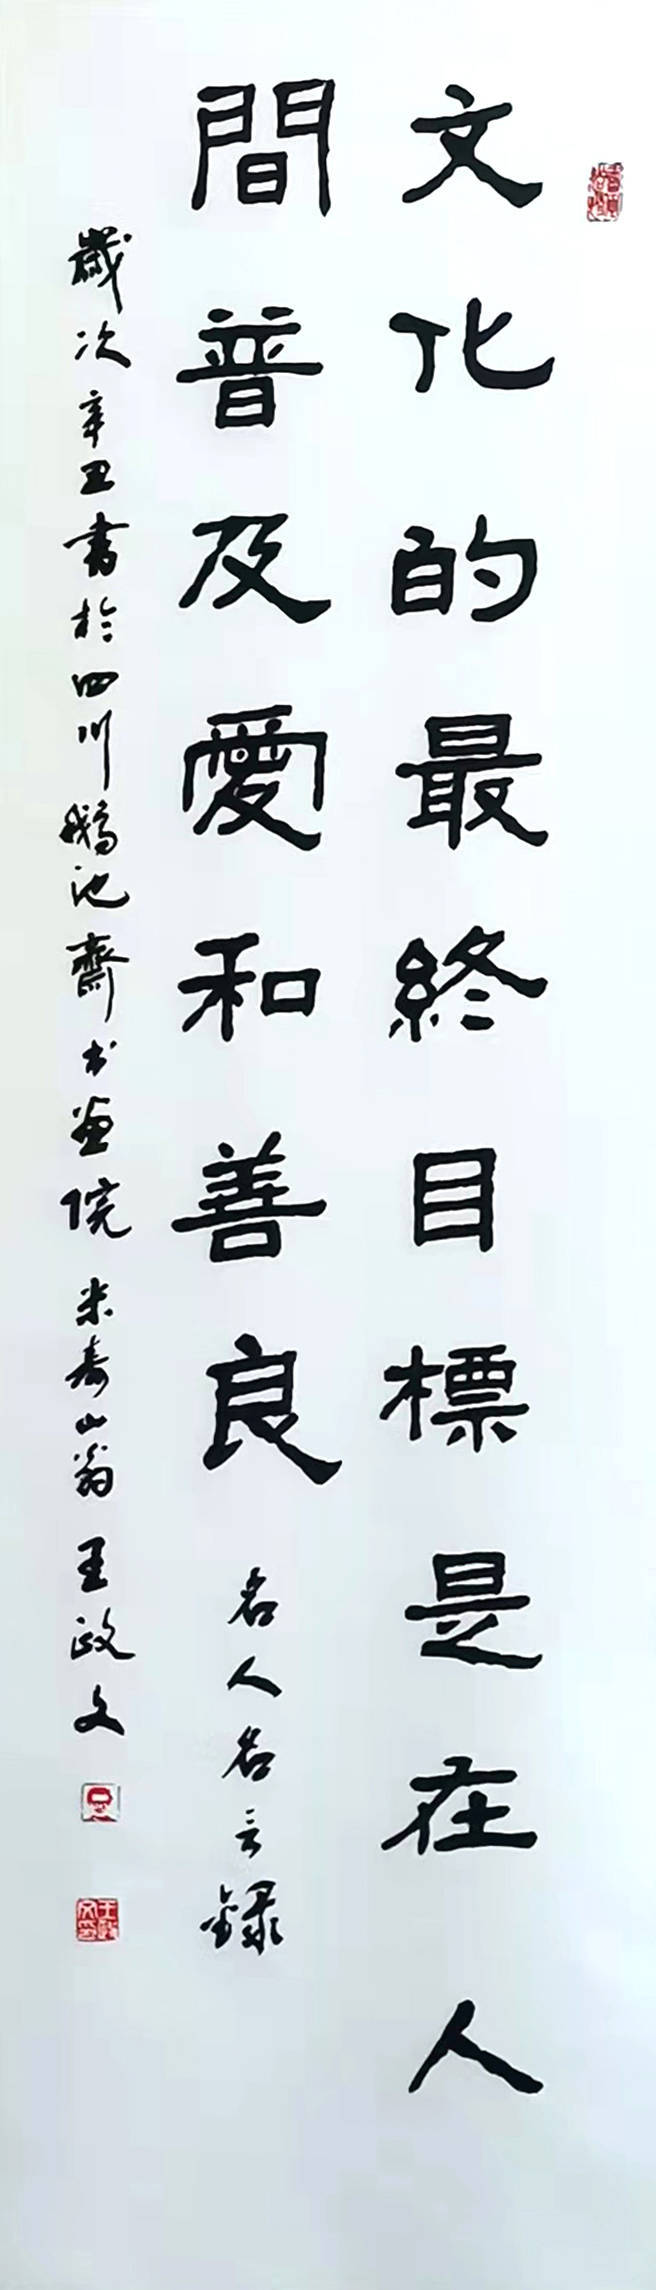 文化的最終目標是在人
間普及愛和善良 名人名言錄
歲次辛丑書於四川鵝池齋书画院 米寿山翁 王政文
王政文印